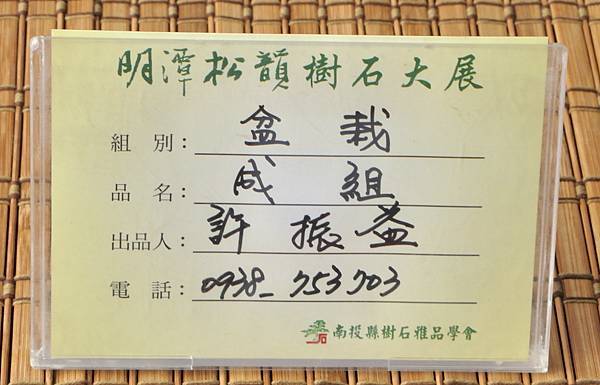 明潭松韻樹石大展
組 別：盆 栽
品 名：成 組
出品人：許 振 益
電 話：0938-753703
南投縣樹石雅品學會